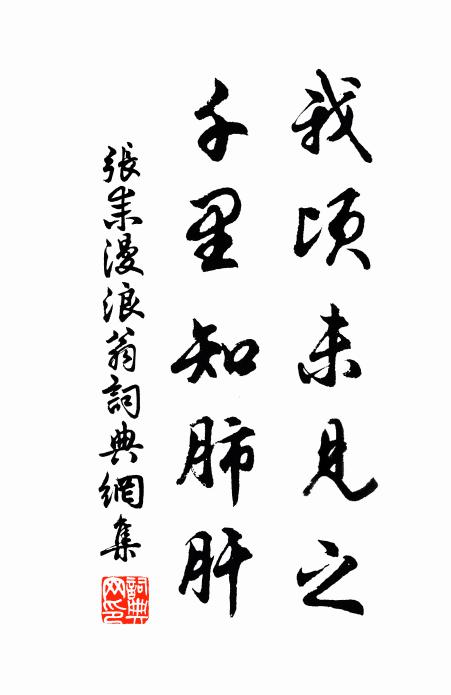 我頃未見之
千里知肺肝
張耒漫浪翁詞典網集
詞典網印